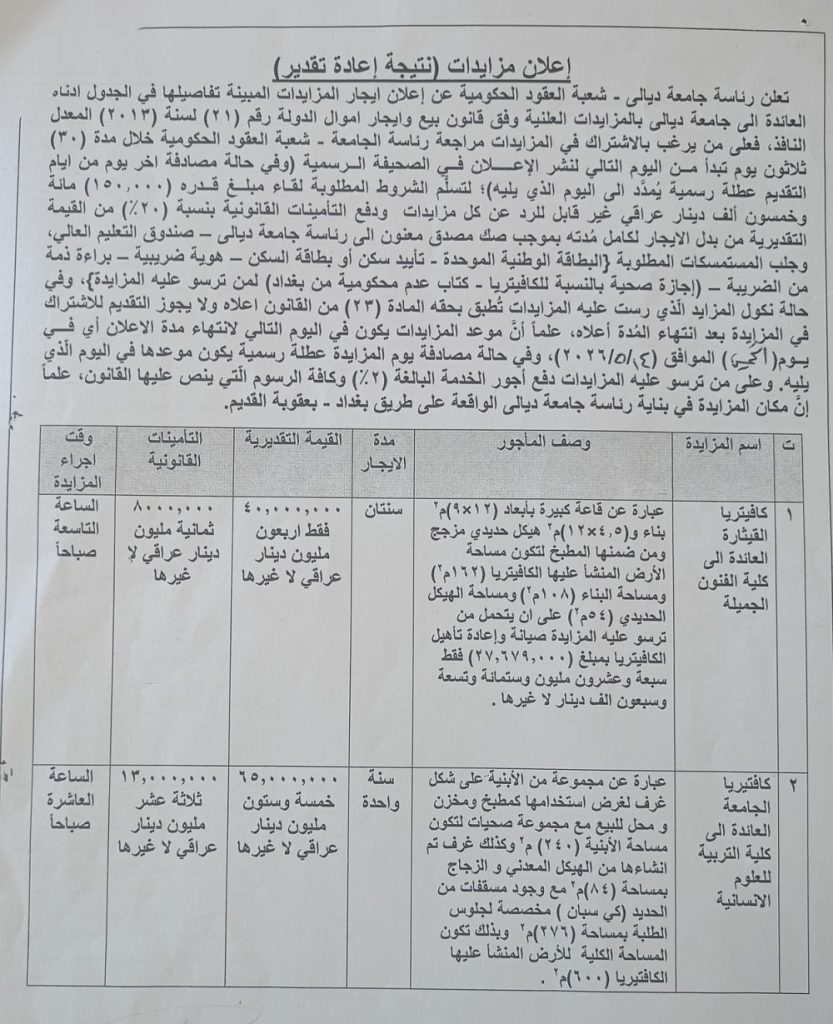 إعلان مزايدات (نتيجة إعادة تقدير)
تعلن رئاسة جامعة ديالى - شعبة العقود الحكومية عن إعلان ايجار المزايدات المبينة تفاصيلها في الجدول ادناه
العائدة الى جامعة ديالى بالمزايدات العلنية وفق قانون بيع وايجار اموال الدولة رقم (٢١) لسنة (٢٠١٣) المعدل
النافذ، فعلى من يرغب بالاشتراك في المزايدات مراجعة رئاسة الجامعة - شعبة العقود الحكومية خلال مدة (٣٠)
ثلاثون يوم تبدأ من اليوم التالي لنشر الإعلان في الصحيفة الرسمية (وفي حالة مصادفة اخر يوم من ايام
التقديم عطلة رسمية يُمدَّد الى اليوم الذي يليه)؛ لتسلُّم الشروط المطلوبة لقاء مبلغ قدره (١٥٠,٠٠٠) مائة
وخمسون ألف دينار عراقي غير قابل للرد عن كل مزايدات ودفع التأمينات القانونية بنسبة (٢٠٪) من القيمة
التقديرية من بدل الايجار لكامل مُدته بموجب صك مصدق معنون الى رئاسة جامعة ديالى – صندوق التعليم العالي،
وجلب المستمسكات المطلوبة {البطاقة الوطنية الموحدة - تأييد سكن أو بطاقة السكن – هوية ضريبية – براءة ذمة
من الضريبة – (إجازة صحية بالنسبة للكافيتريا - كتاب عدم محكومية من بغداد) لمن ترسو عليه المزايدة}، وفي
حالة نكول المزايد الَّذي رست عليه المزايدات تُطبق بحقه المادة (٢٣) من القانون اعلاه ولا يجوز التقديم للاشتراك
في المزايدة بعد انتهاء المُدة أعلاه، علماً أنَّ موعد المزايدات يكون في اليوم التالي لانتهاء مدة الاعلان أي في
يوم( ) الموافق ( /٥/٢٠٢٦)، وفي حالة مصادفة يوم المزايدة عطلة رسمية يكون موعدها في اليوم الَّذي
يليه. وعلى من ترسو عليه المزايدات دفع أجور الخدمة البالغة (٢٪) وكافة الرسوم الَّتي ينص عليها القانون، علماً
إنَّ مكان المزايدة في بناية رئاسة جامعة ديالى الواقعة على طريق بغداد - بعقوبة القديم.
ت
اسم المزايدة
وصف المأجور
مدة
الايجار
القيمة التقديرية
التأمينات
القانونية
وقت
اجراء
المزايدة
١
كافيتريا
القيثارة
العائدة الى
كلية الفنون
الجميلة
عبارة عن قاعة كبيرة بأبعاد (١٢×٩)م٢
بناء و(٤,٥×١٢)م٢ هيكل حديدي مزجج
ومن ضمنها المطبخ لتكون مساحة
الأرض المنشأ عليها الكافيتريا (١٦٢م٢)
ومساحة البناء (١٠٨م٢) ومساحة الهيكل
الحديدي (٥٤م٢) على ان يتحمل من
ترسو عليه المزايدة صيانة وإعادة تأهيل
الكافيتريا بمبلغ (٢٧,٦٧٩,٠٠٠) فقط
سبعة وعشرون مليون وستمائة وتسعة
وسبعون الف دينار لا غيرها .
سنتان
٤٠,٠٠٠,٠٠٠
فقط اربعون
مليون دينار
عراقي لا غيرها
٨٠٠٠,٠٠٠
ثمانية مليون
دينار عراقي لا
غيرها
الساعة
التاسعة
صباحاً
٢
كافتيريا
الجامعة
العائدة الى
كلية التربية
للعلوم
الانسانية
عبارة عن مجموعة من الأبنية على شكل
غرف لغرض استخدامها كمطبخ ومخزن
و محل للبيع مع مجموعة صحيات لتكون
مساحة الأبنية (٢٤٠) م٢ وكذلك غرف تم
انشاءها من الهيكل المعدني و الزجاج
بمساحة (٨٤)م٢ مع وجود مسقفات من
الحديد (كي سبان ) مخصصة لجلوس
الطلبة بمساحة (٢٧٦)م٢ وبذلك تكون
المساحة الكلية للأرض المنشأ عليها
الكافتيريا (٦٠٠)م٢ .
سنة
واحدة
٦٥,٠٠٠,٠٠٠
خمسة وستون
مليون دينار
عراقي لا غيرها
١٣,٠٠٠,٠٠٠
ثلاثة عشر
مليون دينار
عراقي لا غيرها
الساعة
العاشرة
صباحاً